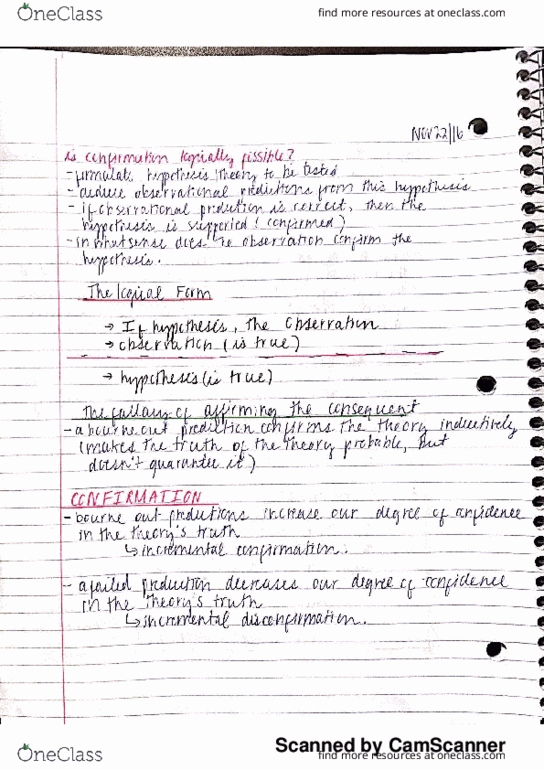 OneClass
find more resources at oneclass.com
Nov 22/16
is confirmation logically possible?
- formulate hypothesis/theory to be tested
- deduce observational predictions from this hypothesis
- if observational prediction is correct, then the
hypothesis is supported (confirmed)
- in what sense does the observation confirm the
hypothesis.
The logical Form
→ If hypothesis, the observation
→ observation (is true)
→ hypothesis (is true)
The fallacy of affirming the consequent
- a bourne out prediction confirms the theory inductively
(makes the truth of the theory probable, but
doesn't guarantee it)
CONFIRMATION
- bourne out predictions increase our degree of confidence
in the theory's truth
↳ incremental confirmation.
- a failed prediction decreases our degree of confidence
in the theory's truth
↳ incremental disconfirmation.
Scanned by CamScanner
OneClass
find more resources at oneclass.com